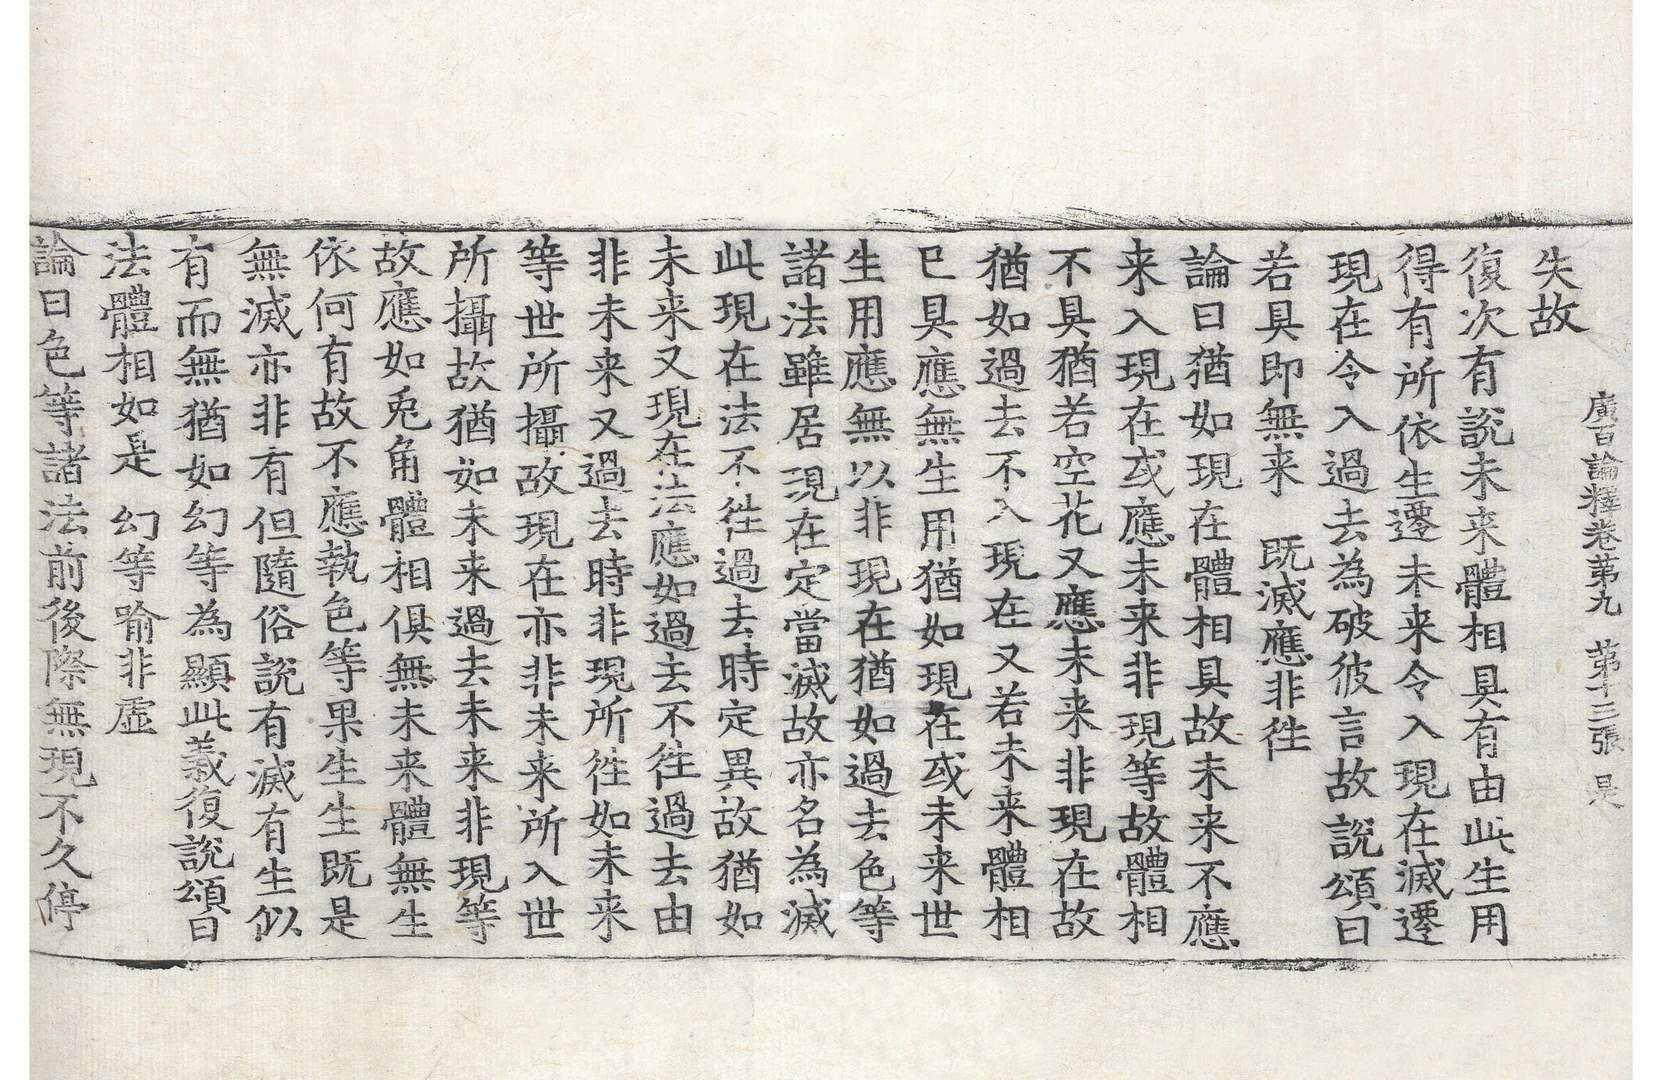 廣百論釋卷第九　第十三張　是
失故
復次有說未来體相具有由此生用
得有所依生遷未来令入現在滅遷
現在令入過去為破彼言故說頌曰
若具即無来　既滅應非徃
論曰猶如現在體相具故未来不應
来入現在或應未来非現等故體相
不具猶若空花又應未来非現在故
猶如過去不入現在又若未来體相
已具應無生用猶如現在或未来世
生用應無以非現在猶如過去色等
諸法雖居現在定當滅故亦名為滅
此現在法不徃過去時定異故猶如
未来又現在法應如過去不徃過去由
非未来又過去時非現所徃如未来
等世所攝故現在亦非未来所入世
所攝故猶如未来過去未来非現等
故應如兎角體相俱無未来體無生
依何有故不應執色等果生生既是
無滅亦非有但隨俗說有滅有生似
有而無猶如幻等為顯此義復說頌曰
法體相如是　幻等喻非虛
論曰色等諸法前後際無現不久停